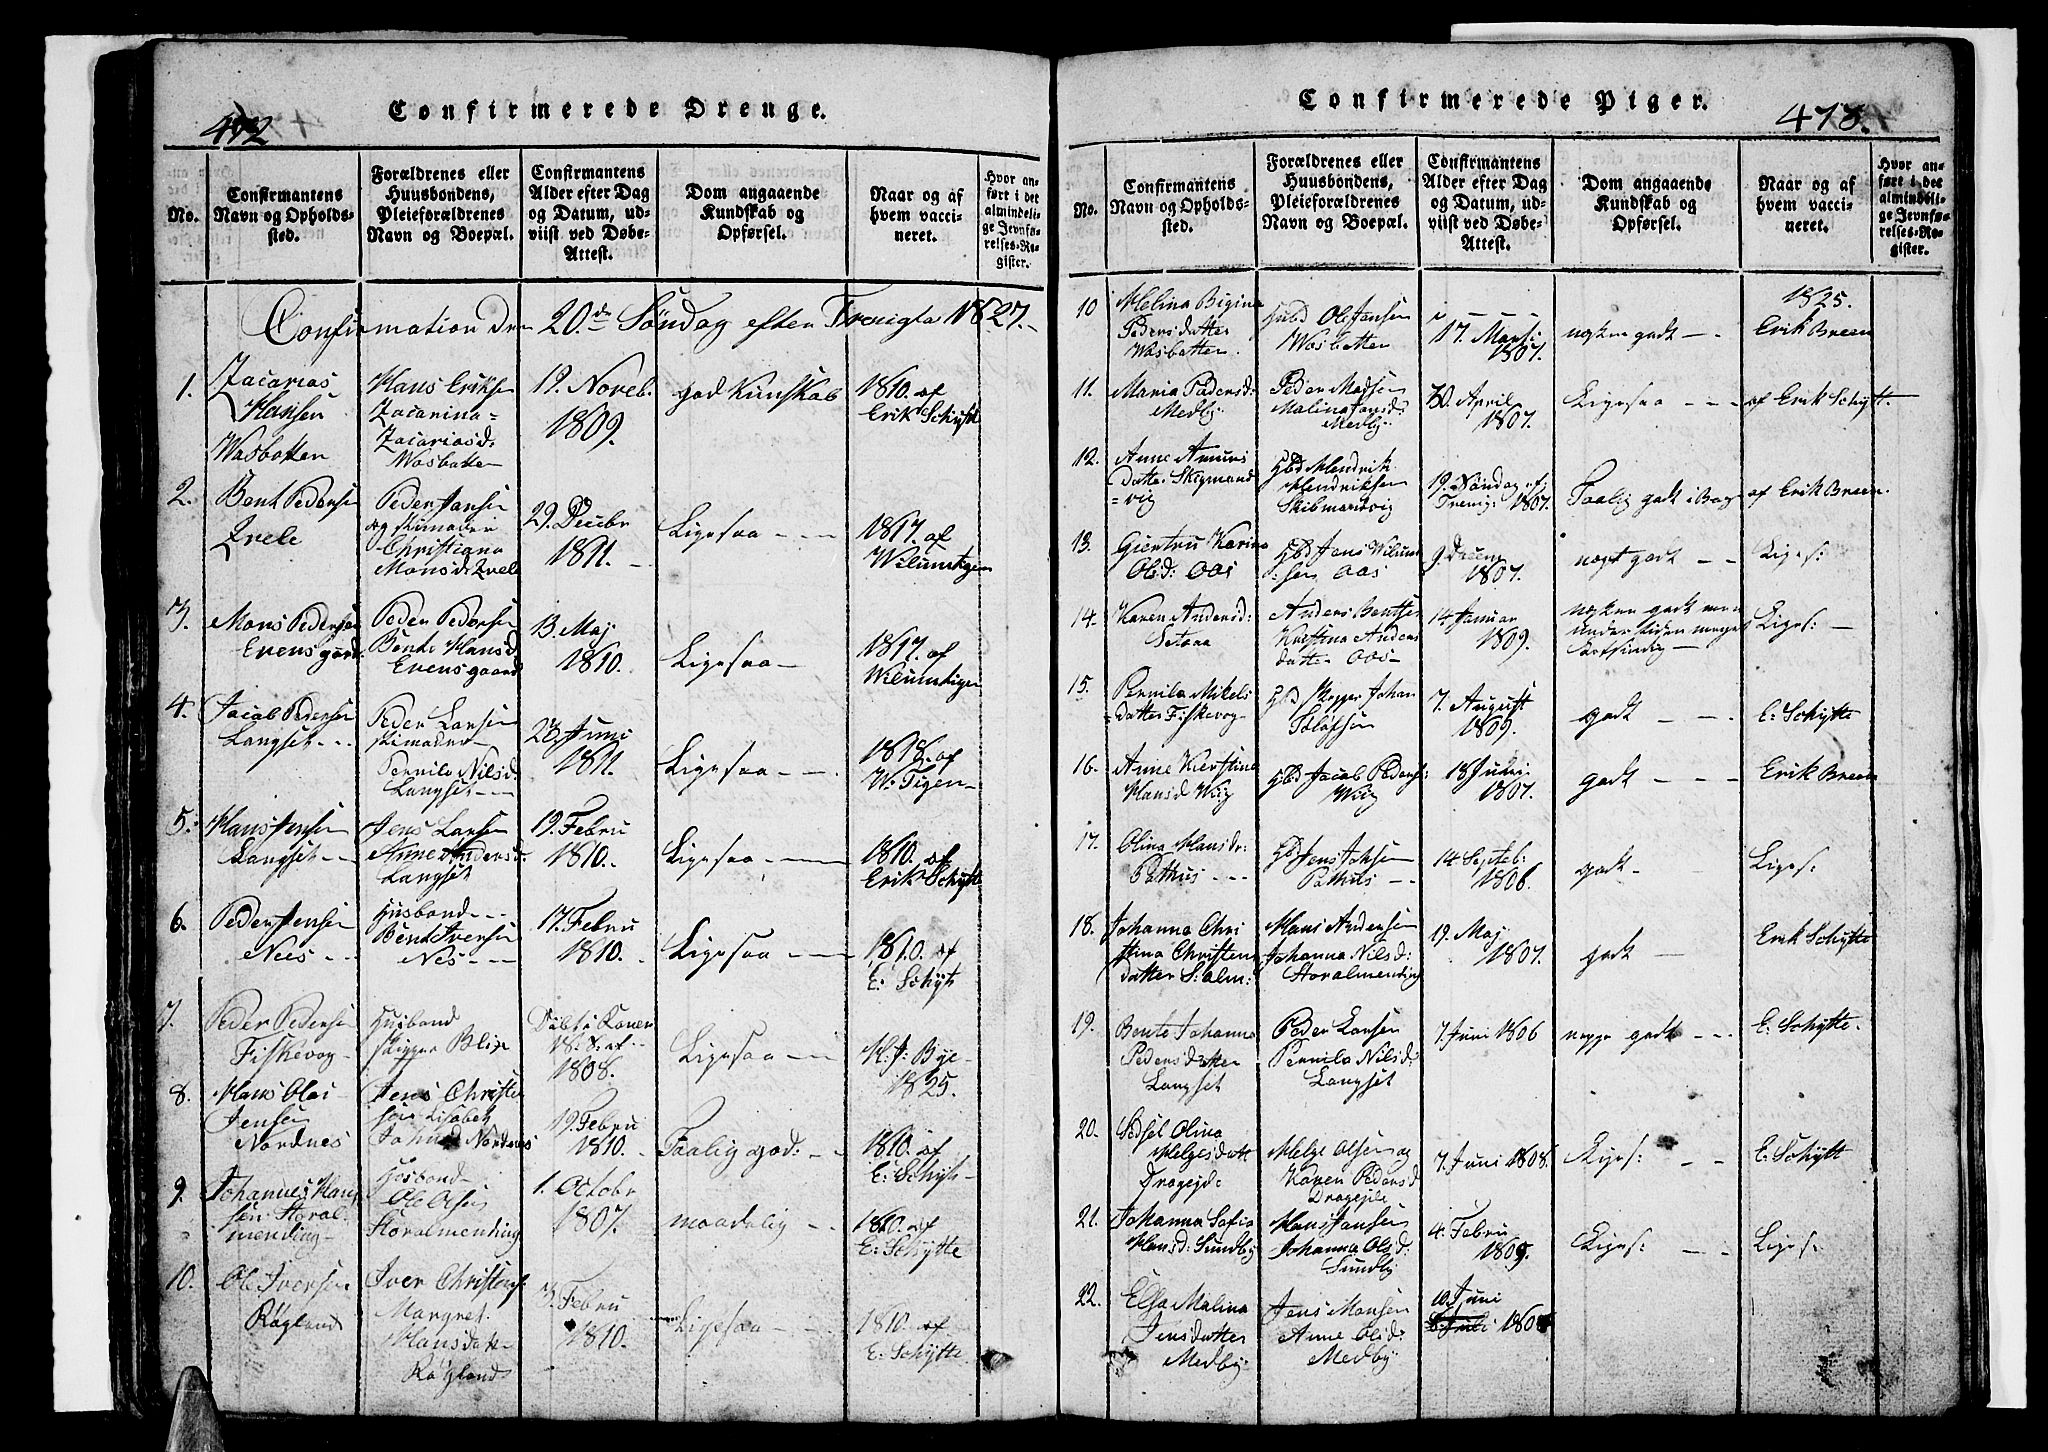 472
Confirmerede Drenge.
No.
Confirmantens Navn og Opholds-sted.
Forældrenes eller Huusbondens, Pleieforældrenes Navn og Boepæl.
Confirmantens Alder efter Dag og Datum, ud-viist ved Døbe-Attest.
Dom angaaende Kundskab og Opførsel.
Naar og af hvem vacci-neret.
Hvor an-ført i det almindeli-ge Jevnfø-relses-Re-gister.
Confirmation den 20de Søndag efter 1827.
1. Zacarias Hansen Wasbotten
Hans Eriksen Zacarina Zacariasd: Wasbotten
19. Noveb. 1809.
god Kunskab
1810. af Erik Schytte
2. Bent Pedersen
Peder Jansen Christiana Monsd:
29. Decebr 1811.
Ligesaa - - -
1817. af
3. Mons Pedersen Evensgaard:
Peder Pedersen Bente Hansd Evensgaard
13. Maj 1810.
Ligesaa -
1817. af
4. Jacob Pedersen Langset - -
Peder Larsen Pernila Nilsd: Langset - -
23. Juni 1811.
Ligesaa - - -
1818. af W: Tigen -
5. Hans Jensen Langset - -
Jens Larsen Anne Andersd: Langset
19. Febru 1810.
Ligesaa - - -
1810. af Erik Schytte
6. Peder Jensen Nees - -
Husbond - - Bent Iversen Nes - -
17. Febru 1810.
Ligesaa - - -
1810. af E: Schyt
7. Peder Pedersen Fiskevog -
Husbond
1808.
Ligesaa - - -
H: J: Bye 1825.
8. Hans Olai Jensen Nordnes
Jens Christen sen Lisabet Nordnes
19. Febru 1810.
Taalig god: - -
1810. af E: Schyt -
9. Johannes Han sen Storal mending -
Hosbond - Ole Olsen Storalmending
1. Octobr 1807.
maadelig - -
1810. af E: Schytte
10. Ole Iversen Røgland
Iver Christens: Margret Hansdatter Røgland
3. Febru 1810.
Ligesaa - -
1810. af E: Schytte
Confirmerede Piger.
473.
No.
Confirmantens Navn og Opholds-sted.
Forældrenes eller Huusbondens, Pleieforældrenes Navn og Boepæl.
Confirmantens Alder efter Dag og Datum, ud-viist ved Døbe-Attest.
Dom angaaende Kundskab og Opførsel.
Naar og af hvem vacci-neret.
Hvor an-ført i det almindeli-ge Jevnfø-relses-Re-gister.
10 Melina Bigina Pedersdatter Wasbotten.
Ole Jansen Wasbotten
17. Mars: 1807.
nogken godt - -
1825. Erik Breen
11. Maria Pedersd: Medby:
Peder Madsen Malina Jansd: Medby:
30. April 1807.
Ligesaa - - -
af Erik Schytt -
12. Anne
Hendrik Hendriksen
19. Søndag ef: Trenig: 1807.
Taalig godt i Bog
af Erik Breen.
13. Giertru Karina Olsd: Oas
Jens
9. Decem 1807.
godt - -
Ligs:
14. Karen Andersd: Setaa
Anders Bentsen Kristina Anders datter Oas -
14 Januar 1809.
nogken godt men
Ligs: -
15. Pernila Mikels datter Fiskevog -
Johan
7. August 1809.
godt - - -
E: Schytte
16. Anne Kierstina Hansd Wig
Jacob Peders: Wig
18 1807.
godt - - -
Erik Breen
17. Olina Hansdr: Pothus - -
Pothus - -
14 Septeb: 1806.
godt -
Ligs:
18. Johanna Chri stina Christens datter S: alm:
Hans Andersen Johanna Nilsd: Storalmending
19. Maj 1807.
godt -
Erik Schytte
19. Bente Johanna Pedersdatter Langset
Peder Larsen Pernila Nilsd: Langset
7. Juni 1806
godt - - -
E: Schytte.
20. Sedsel Olina Helgesdatt
Helge Olsen og Karen Pedersd
7. Juni 1808.
Ligs: - -
E: Schytt
21. Johanna Sofia Hansd: Sundby
Hans Jansen Johanna Olsd: Sundby
4. Febru 1809.
Ligs: - -
Ligs:
22. Elsa Malina Jensdatter Medby:
Jens Monsen Anne Olsd: Medby
10. Juni